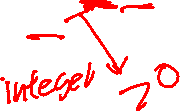 integer
20